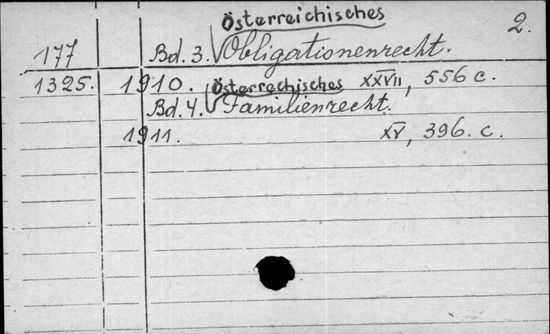 Österreichisches 2.
177 Bd. 3. Obligationenrecht.
1325. 1910. XXVII, 556 c.
Österrechisches
Bd. 4. Familienrecht.
1911. XV, 396. c.